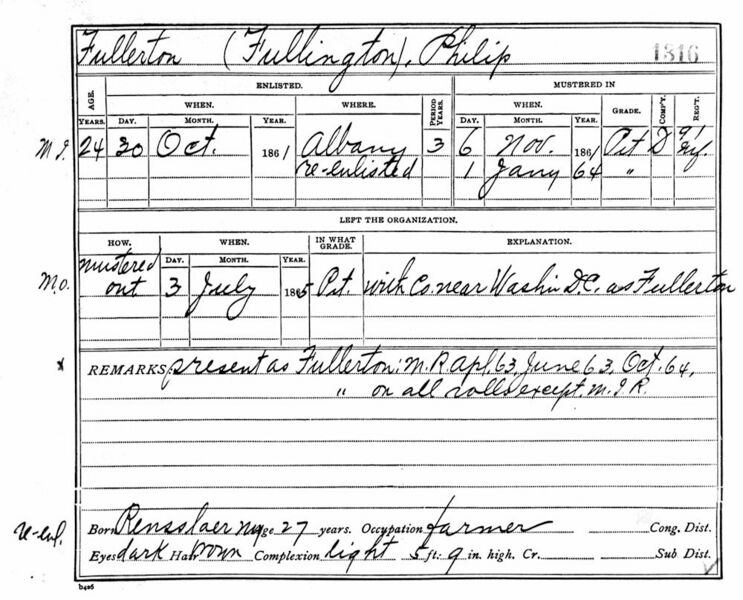 Fullerton (Fullington), Philip 1316
ENLISTED. MUSTERED IN
AGE. WHEN. WHERE. PERIOD WHEN. GRADE. COMP'Y. REG'T.
YEARS. DAY. MONTH. YEAR. YEARS. DAY. MONTH. YEAR.
M.I. 24 30 Oct. 1861 Albany 3 6 Nov. 1861 Pvt D 91
re-enlisted 1 Jany 64 "
LEFT THE ORGANIZATION.
HOW. WHEN. IN WHAT GRADE. EXPLANATION.
DAY. MONTH. YEAR.
mustered
M.O. out 3 July 1865 Pvt. with Co. near Washn D.C. as Fullerton
* REMARKS: present as Fullerton: M.R. Apl. 63, June 63, Oct. 64,
" on all rolls except M.I.R.
re-enl. Born Rensslaer NY age 27 years. Occupation farmer Cong. Dist.
Eyes dark Hair brown Complexion light 5 ft. 9 in. high. Cr. Sub Dist.
b426